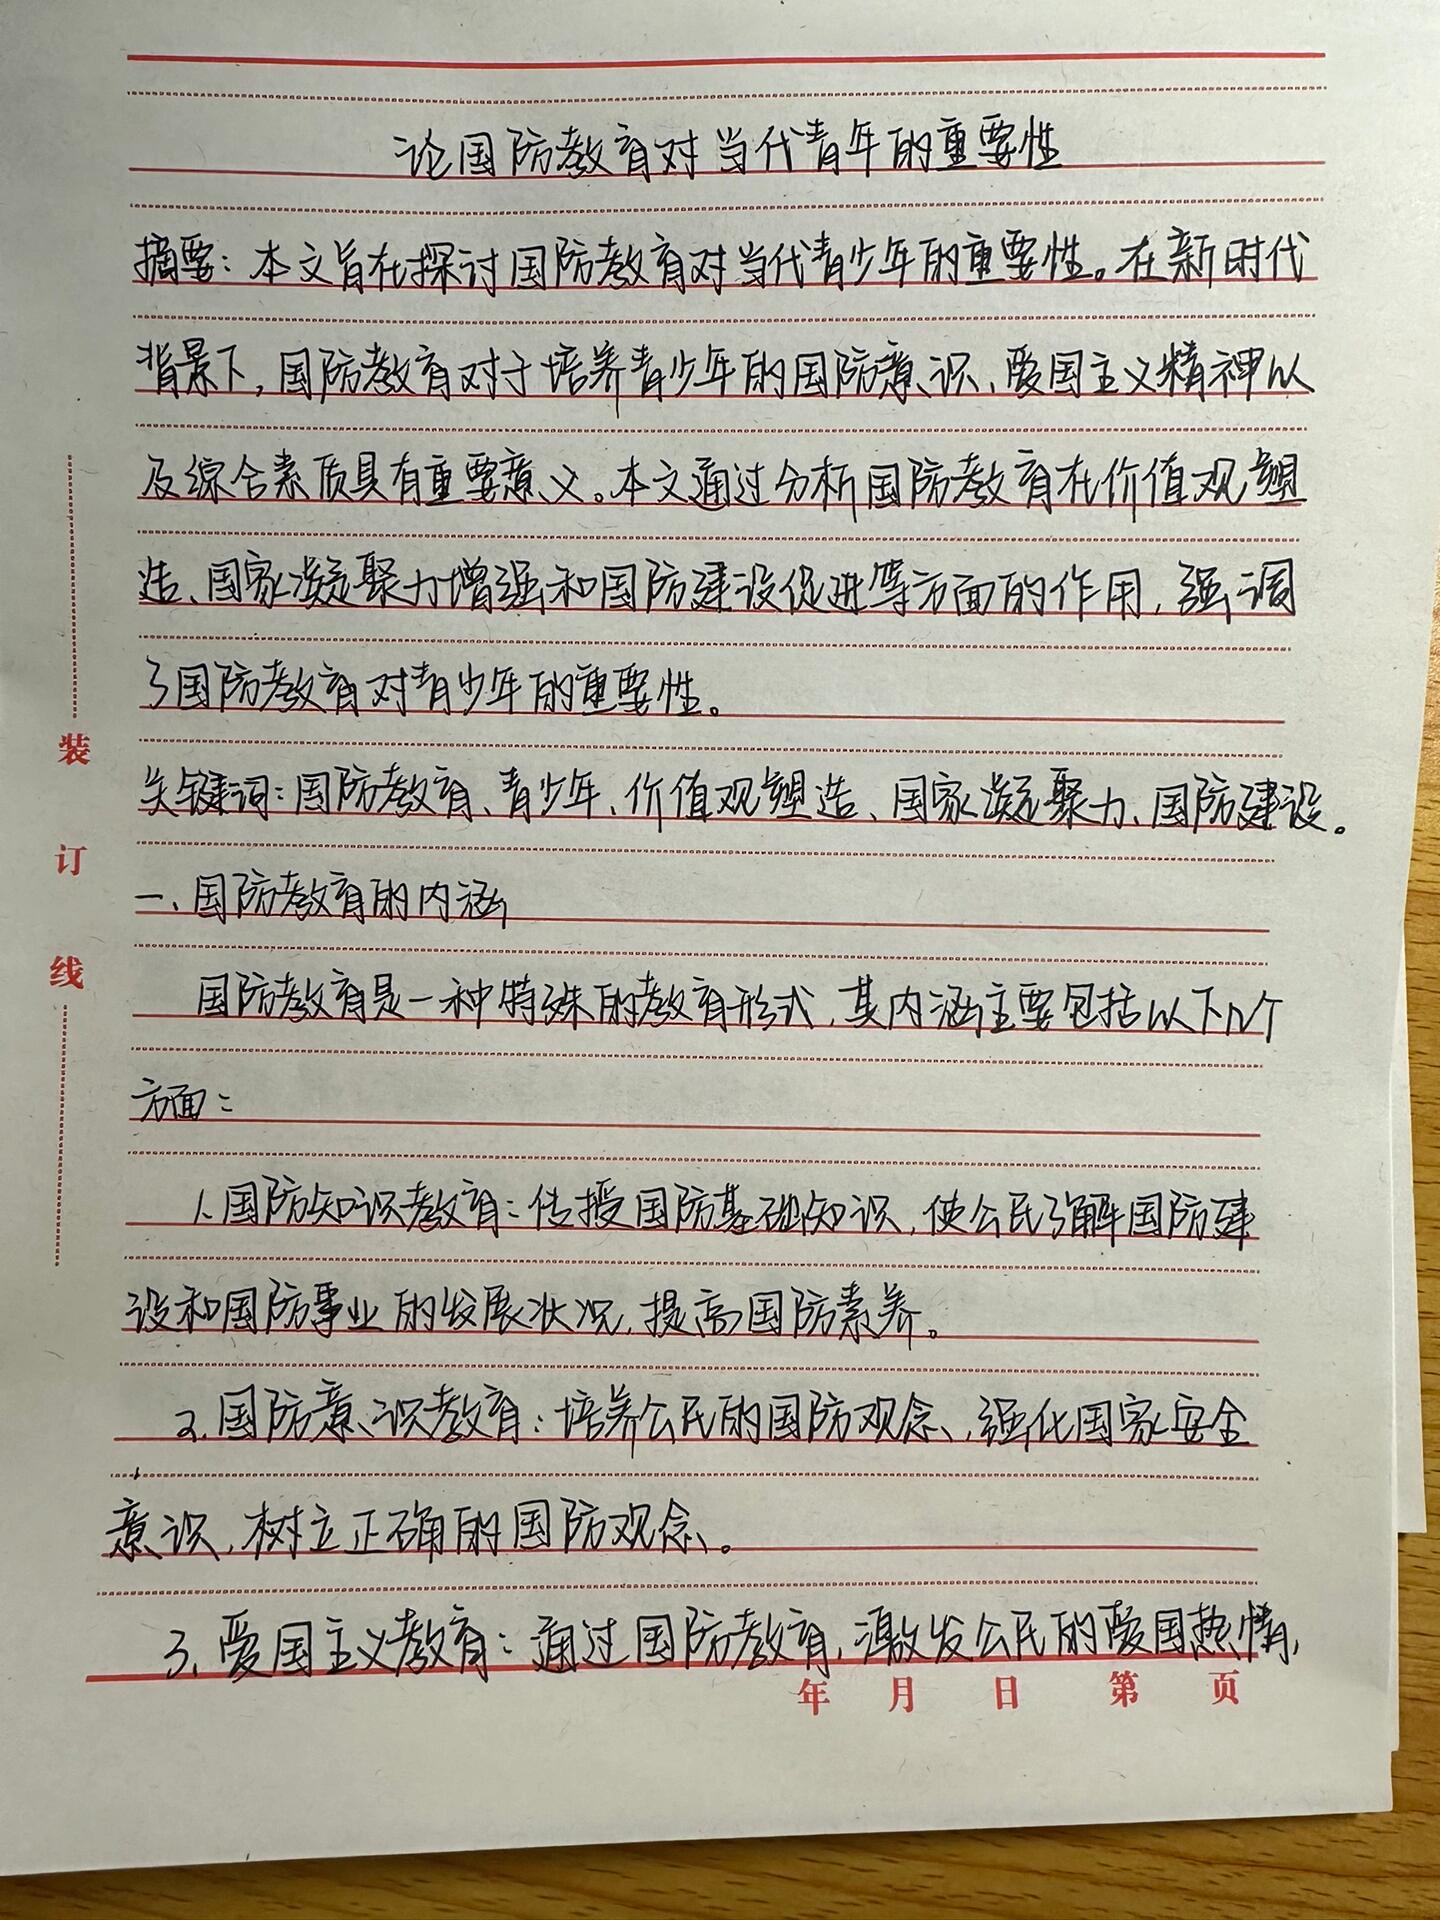 论国防教育对当代青年的重要性
摘要：本文旨在探讨国防教育对当代青少年的重要性。在新时代
背景下，国防教育对于培养青少年的国防意识、爱国主义精神以
及综合素质具有重要意义。本文通过分析国防教育在价值观塑
造、国家凝聚力增强和国防建设促进等方面的作用，强调
了国防教育对青少年的重要性。
关键词：国防教育、青少年、价值观塑造、国家凝聚力、国防建设。
一、国防教育的内涵
国防教育是一种特殊的教育形式，其内涵主要包括以下几个
方面：
1.国防知识教育：传授国防基础知识，使公民了解国防建
设和国防事业的发展状况，提高国防素养。
2.国防意识教育：培养公民的国防观念，强化国家安全
意识，树立正确的国防观念。
3.爱国主义教育：通过国防教育，激发公民的爱国热情，
装
订
线
年 月 日 第 页